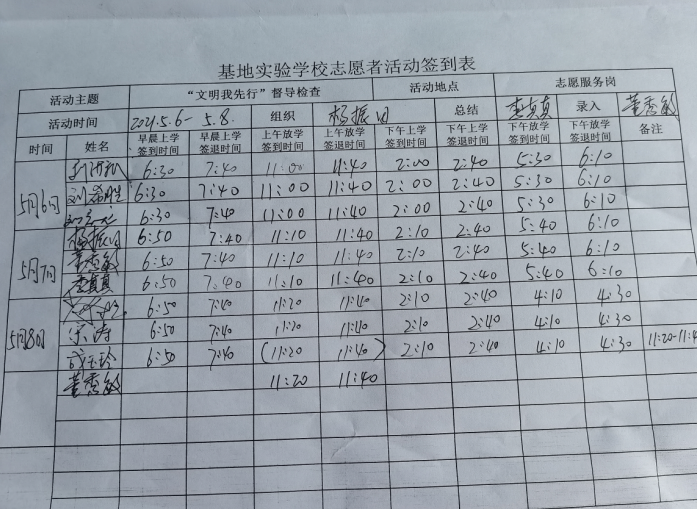 基地实验学校志愿者活动签到表
活动主题 “文明我先行”督导检查 活动地点 志愿服务岗
活动时间 2021.5.6-5.8. 组织 杨振 总结 李真真 录入 董秀敏
时间 姓名 早晨上学签到时间 早晨上学签退时间 上午放学签到时间 上午放学签退时间 下午上学签到时间 下午上学签退时间 下午放学签到时间 下午放学签退时间 备注
5月6日 6:30 7:40 11:00 11:40 2:00 2:40 5:30 6:10
刘希胜 6:30 7:40 11:00 11:40 2:00 2:40 5:30 6:10
6:30 7:40 11:00 11:40 2:00 2:40 5:30 6:10
5月7日 杨振 6:50 7:40 11:10 11:40 2:10 2:40 5:40 6:10
董秀敏 6:50 7:40 11:10 11:40 2:10 2:40 5:40 6:10
李真真 6:50 7:40 11:10 11:40 2:10 2:40 5:40 6:10
5月8日 6:50 7:40 11:20 11:40 2:10 2:40 4:10 4:30
宋涛 6:50 7:40 11:20 11:40 2:10 2:40 4:10 4:30
玉玲 6:50 7:40 (11:20 11:40) 2:10 2:40 4:10 4:30 11:20-11:4
董秀敏 11:20 11:40